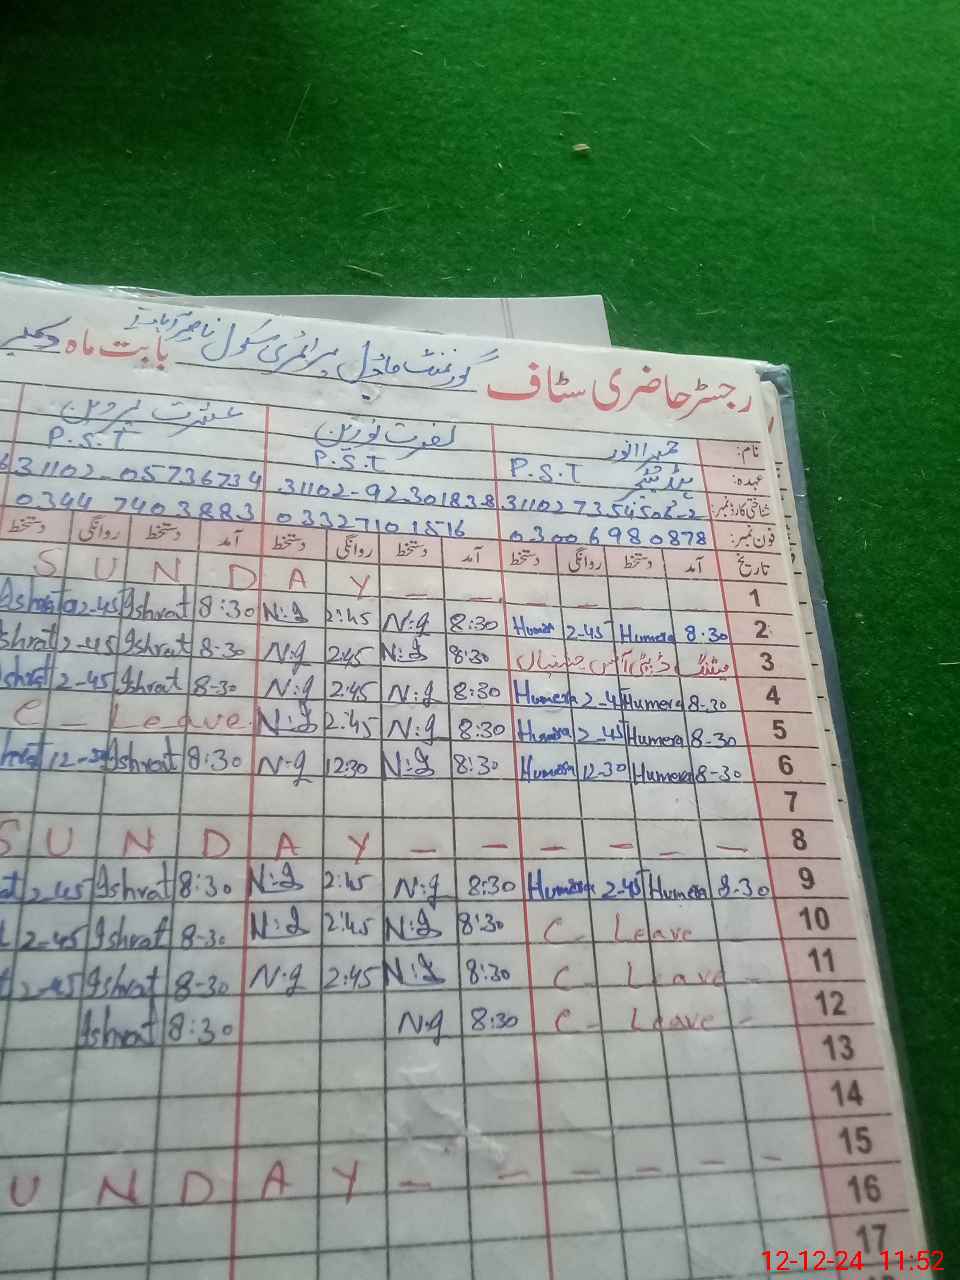 رجسٹر حاضری سٹاف گورنمنٹ ماڈل پرائمری سکول بابت ماہ
نام: حمیرا انور نصرت نورین عشرت پروین
عہدہ: ہیڈ ٹیچر P.S.T P.S.T P.S.T
شناختی کارڈ نمبر: 31102-9230183-8 31102-0573673 4
فون نمبر: 03006980878 03327101516 0344 7403883
تاریخ آمد دستخط روانگی دستخط آمد دستخط روانگی دستخط آمد دستخط روانگی دستخط
1 S U N D A Y – – – – –
2 8.30 Humera 2-45 Humera 8:30 N.g 2:45 N.g 8:30 Ishrat 2-45 Ishrat
3 میٹنگ ڈپٹی آفس 8:30 N.g 2:45 N.g 8-30 Ishrat 2-45 Ishrat
4 8-30 Humera 2-4 Humera 8:30 N.g 2:45 N.g 8-30 Ishrat 2-45
5 8-30 Humera 2-45 Humera 8:30 N.g 2:45 N.g C – Leave
6 8-30 Humera 12-30 Humera 8:30 N.g 12:30 N.g 8:30 Ishrat
7
8 S U N D A Y – – – – –
9 8-30 Humera 2-45 Humera 8:30 N.g 2:45 N.g 8:30 Ishrat 2-45
10 C – Leave 8:30 N.g 2:45 N.g 8-30 Ishrat 2-45
11 C – Leave – 8:30 N.g 2:45 N.g 8-30 Ishrat 2-45
12 C – Leave – 8:30 N.g 8:30 Ishrat
13
14
15 U N D A Y – – – – – –
16
17
12-12-24 11:52